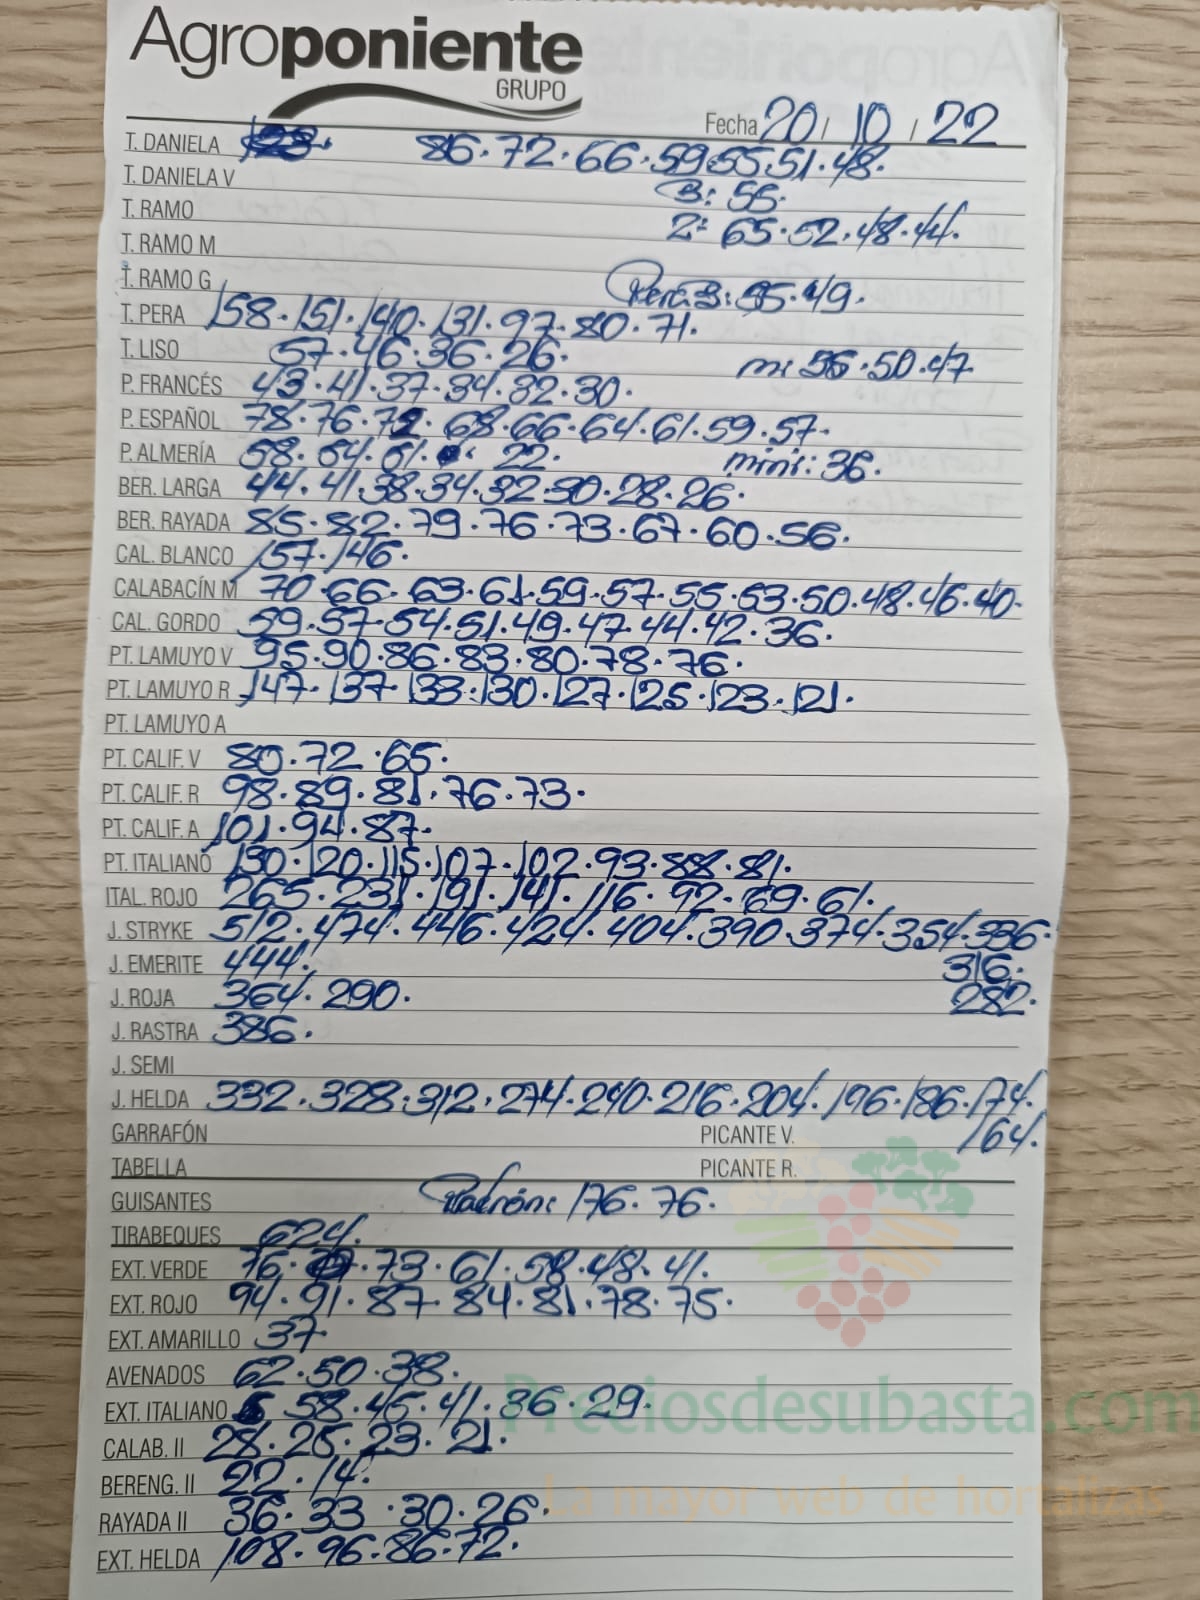 Agroponiente
GRUPO
Fecha 20 / 10 / 22
T. DANELA 86.72.66.59.55.51.48.
T. DANIELA V B: 55.
T. RAMO 2ª 65.52.48.44.
T. RAMO M
T. RAMO G Pera B: 55.49.
T. PERA 158.151.140.131.97.80.71.
T. LISO 57.46.36.26. m: 56.50.47
P. FRANCÉS 43.41.37.34.32.30.
P. ESPAÑOL 78.76.72.68.66.64.61.59.57.
P. ALMERÍA 58.54.51. 22. mini: 36.
BER. LARGA 44.41.38.34.32.30.28.26.
BER. RAYADA 85.82.79.76.73.67.60.56.
CAL. BLANCO 157.146.
CALABACÍN M 70.66.63.61.59.57.55.53.50.48.46.40.
CAL. GORDO 59.57.54.51.49.47.44.42.36.
PT. LAMUYO V 95.90.86.83.80.78.76.
PT. LAMUYO R 147.137.133.130.127.125.123.121.
PT. LAMUYO A
PT. CALIF. V 80.72.65.
PT. CALIF. R 98.89.81.76.73.
PT. CALIF. A 101.94.87.
PT. ITALIANO 130.120.115.107.102.93.88.81.
ITAL. ROJO 265.231.191.141.116.92.69.61.
J. STRYKE 512.474.446.424.404.390.374.354.336.
J. EMERITE 444. 316.
J. ROJA 364.290. 282.
J. RASTRA 386.
J. SEMI
J. HELDA 332.328.312.274.240.216.204.196.186.174.
GARRAFÓN PICANTE V. 164.
TABELLA PICANTE R.
GUISANTES Padrón: 176.76.
TIRABEQUES 624.
EXT. VERDE 76. 73.61.58.48.41.
EXT. ROJO 94.91.87.84.81.78.75.
EXT. AMARILLO 37
AVENADOS 62.50.38.
EXT. ITALIANO 58.45.41.36.29.
Preciosdesubasta.com
CALAB. II 28.25.23.21.
BERENG. II 22.14.
La mayor web de hortalizas
RAYADA II 36.33.30.26.
EXT. HELDA 108.96.86.72.